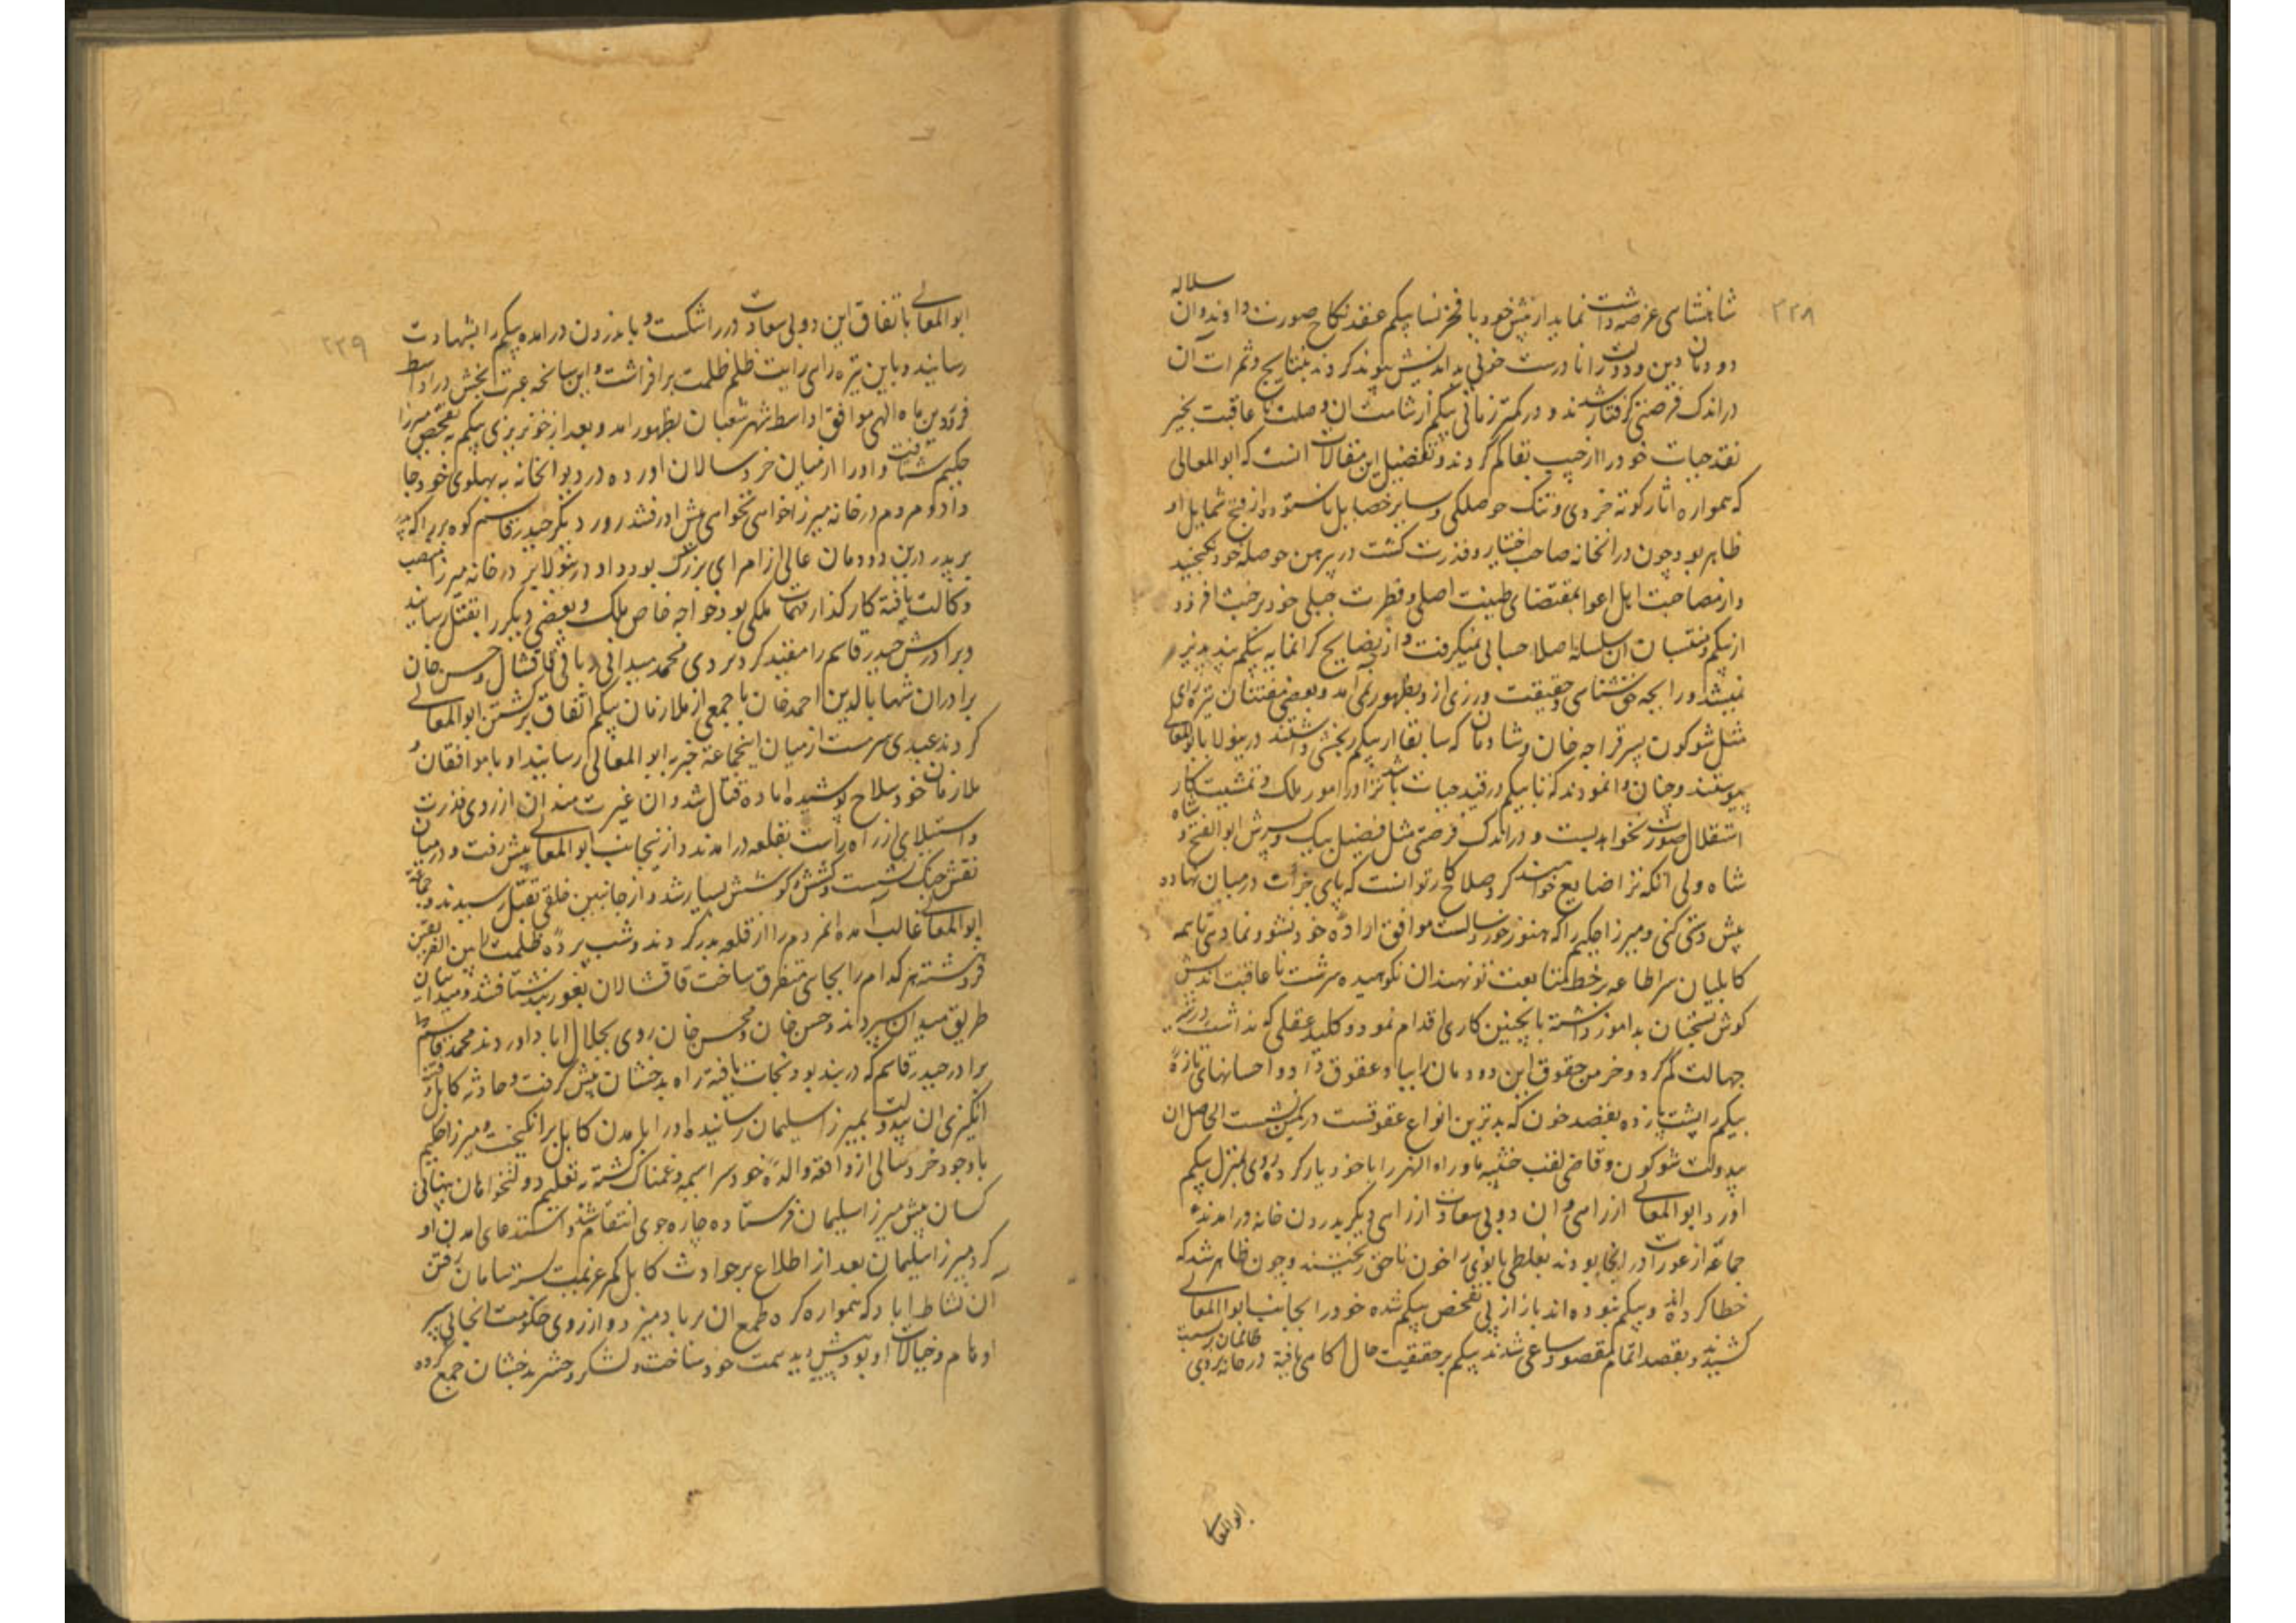 ۳۳۸
سلاله
شاهنشاهی عرضه داشت نماید از پیش خود با فخر نسا بیکم عقد نکاح صورت داوند و ان
دودمان دین و دولت را نا درست خونی بداندیش پیوند کردند بنتایج و ثمرات آن
در اندک فرصتی کرفتار شدند و در کمتر زمانی بیکم از شامت ان وصلت نا عاقبت بخیر
نقد حیات خود را از جیب بقا کم کردند و تفضیل این مقالات انست که ابوالمعالی
که همواره اثار کوته خردی و تنک حوصلکی و سایر خصایل ناستوده از قبح شمایل او
ظاهر بود چون در انخانه صاحب اختیار و قدرت کشت در پیرهن حوصله خود نکنجید
و از مصاحبت اهل اغوا بمقتضای طینت اصلی و فطرت جبلی خود بر خبث افزود
از بیکم و منتسبان ان سلسله اصلا حسابی نمیکرفت و از نصایح کرانمایه بیکم پند پذیر
نمیشد و رایحه حق شناسی و حقیقت ورزی از و بظهور نمی امد و بعضی مفتنان تیره رای
مثل شوکون پسر قراجه خان و شادمان که سابقا از بیکم رنجشی داشتند درینولا بابوالمعالی
پیوستند و چنان وانمودند که تا بیکم در قید حیات باشد ترا در امور ملک و تمشیت کار
استقلال صورت نخواهد بست و در اندک فرصتی مثل فضیل بیک و پسرش ابوالفتح و شاه
شاه ولی اتکه ترا ضایع خواهند کرد صلاح کار تو انست که پای جرات در میان نهاده
پیش دستی کنی و میرزا حکیم را که هنوز خورد سالست موافق اراده خود نشو و نما دهی تا همه
کابلیان سر اطاعه بر خط متابعت تو نهند ان نکوهیده سرشت نا عاقبت اندیش
کوش بسخنان بداموز داشته بانچنین کاری اقدام نمود و کلید عقلی که نداشت در تیه
جهالت کم کرد و خرمن حقوق این دودمان را بباد عقوق داد و احسانهای تازه
بیکم را پشت پا زده بقصد خون که بدترین انواع عقوقست در کمین نشست الحاصل ان
بیدولت شوکون و قاضی لقب خبثیه ماوراءالنهر را با خود یار کرده روی بمنزل بیکم
اورد ابوالمعالی از راهی و ان دو بی سعادت از راهی دیکر بدرون خانه درامدند
جماعه از عورات در انجا بودند بغلطی بانوی را خون ناحق ریختند و چون ظاهر شد که
خطا کرده اند و بیکم نبوده اند باز از پی تفحص بیکم شده خود را بجانب ابوالمعالی
کشیدند و بقصد اتمام مقصود ساعی شدند بیکم بر حقیقت حال اکاهی یافته در خانه بروی ظالمان بست
ابوالمعالی
۳۳۹
ابوالمعالی باتفاق این دو بی سعادت در را شکست و باندرون درامده بیکم را بشهادت
رسانید و باین تیره رای رایت ظلم ظلمت بر افراشت و این سانحه عبرت بخش در اواسط
فروردین ماه الهی موافق اواسط شهر شعبان بظهور امد و بعد از خونریزی بیکم به تفحص میرزا
حکیم شتافت و او را از میان خردسالان اورده در دیوانخانه به پهلوی خود جا
داد و مردم درخانه میرزا خواهی نخواهی پیش او رفتند روز دیکر حیدر قاسم کوه بر را که پدر
بر پدر درین دودمان عالی از امرای بزرک بود و او درینولا بر در خانه میرزا منصب
وکالت یافته کارکذار مهمات ملکی بود و خواجه خاص ملک و بعضی دیکر را بقتل رسانید
و برادرش حیدر قاسم را مقید کرد تردی محمد میدانی و باقی قاقشال و حسن خان
برادران شهاب الدین احمد خان با جمعی از ملازمان بیکم اتفاق بر کشتن ابوالمعالی
کردند عبدی سرمست از میان اینجماعه خبر به ابوالمعالی رسانید او با موافقان و
ملازمان خود سلاح پوشیده اماده قتال شد و ان غیرت مندان از روی قدرت
و استیلای از راه راست بقلعه درامدند و از اینجانب ابوالمعالی پیش رفت و در میان
نقش جنک نشست و کشش و کوشش بسیار شد و از جانبین خلقی بقتل رسیدند و جماعه
ابوالمعالی غالب آمده انمردم را از قلعه بدر کردند و شب پرده ظلمت بین الفریقین
فروهشته هر کدام را بجای متفرق ساخت قاقشالان بغوربند شتافتند و میدانیان
طریق میدان سپردند و حسن خان و محسن خان روی بجلال اباد اوردند محمد قاسم
برادر حیدر قاسم که در بند بود نجات یافته راه بدخشان پیش کرفت و حادثه کابل و فتنه
انکیزی ان بیدولت بمیرزا سلیمان رسانیده او را بامدن کابل برانکیخت و میرزا حکیم
با وجود خرد سالی از واقعه والده خود سراسیمه و غمناک کشته به تعلیم دولتخواهان پنهانی
کسان پیش میرزا سلیمان فرستاده چاره جوی انتقام شد و استدعای امدن او
کرد میرزا سلیمان بعد از اطلاع بر حوادث کابل کمر عزیمت بسته سامان رفتن
آن نشاط اباد که همواره کره طمع ان بر باد میزد و از روی حکومت انجایی سیر
اوهام و خیالات او بود پیش دید همت خود ساخت و لشکر و حشر بدخشان جمع کرده